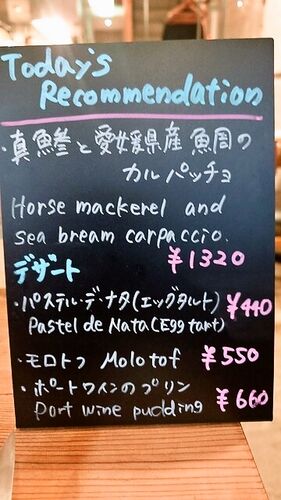 Today's
Recommendation
・真鯵と愛媛県産 鯛の
カルパッチョ
Horse mackerel and
sea bream carpaccio.
¥1320
デザート
・パステル・デ・ナタ(エッグタルト) ¥440
Pastel de Nata(Egg tart)
・モロトフ Molotof ¥550
・ポートワインのプリン
Port wine pudding ¥660